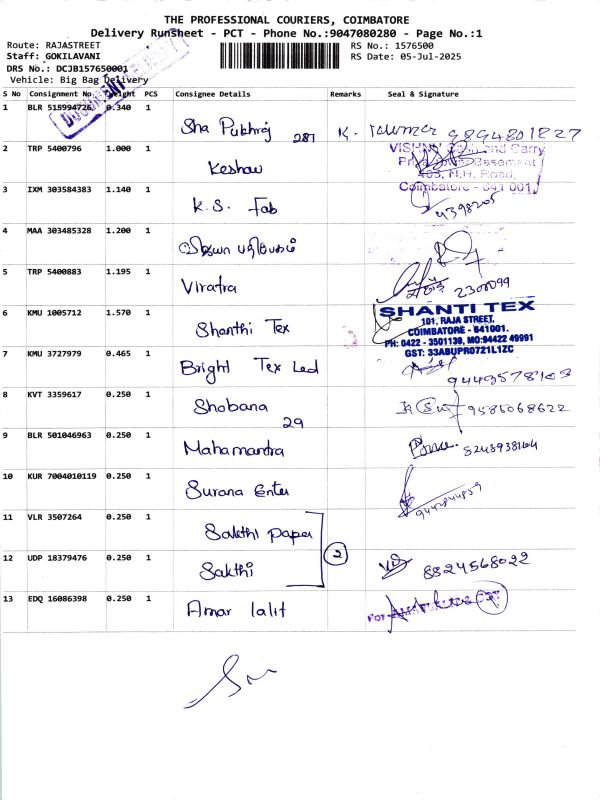 THE PROFESSIONAL COURIERS, COIMBATORE
Delivery Runsheet - PCT - Phone No.:9047080280 - Page No.:1
Route: RAJASTREET RS No.: 1576500
Staff: GOKILAVANI RS Date: 05-Jul-2025
DRS No.: DCJB157650001
Vehicle: Big Bag Delivery
S No Consignment No. Weight PCS Consignee Details Remarks Seal & Signature
1 BLR 515994726 0.340 1 Sha Pukhraj 287 K. Kumar 9894801827
2 TRP 5400796 1.000 1 Keshav
VISHNU Cash and Carry
Basement
403, N.H. Road,
Coimbatore - 641 001.
3 IXM 303584383 1.140 1 K.S. Fab
4 MAA 303485328 1.200 1
5 TRP 5400883 1.195 1 Viratra 2300099
6 KMU 1005712 1.570 1 Shanthi Tex
SHANTI TEX
101, RAJA STREET,
COIMBATORE - 641001.
PH: 0422 - 3501139, MO:94422 49991
GST: 33ABUPR0721L1ZC
7 KMU 3727979 0.465 1 Bright Tex Led
8 KVT 3359617 0.250 1 Shobana 29 9585068622
9 BLR 501046963 0.250 1 Mahamantra
10 KUR 7004010119 0.250 1 Surana Enter
11 VLR 3507264 0.250 1 Sakthi paper
2
12 UDP 18379476 0.250 1 Sakthi 8824568022
13 EDQ 16086398 0.250 1 Amar lalit For